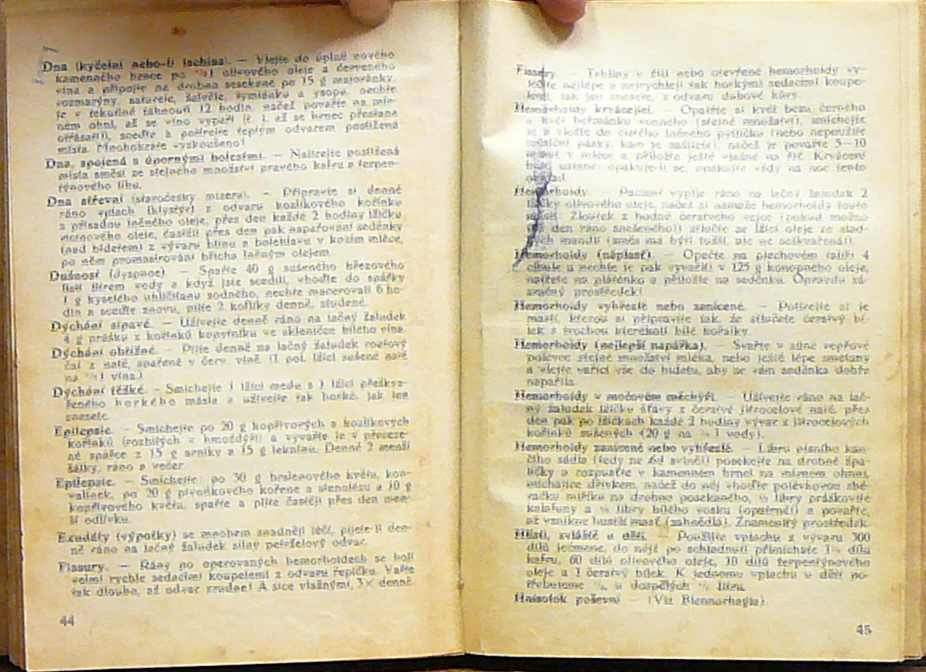 Dna (kyčelní nebo-li ischias). — Vlejte do úplně nového
kameného hrnce po ¾ l olivového oleje a červeného
vína a připojte na drobno sesekané po 15 g majoránky,
rozmarýny, satureje, šalvěje, tymiánku a ysopu, nechte
je v tekutině táhnouti 12 hodin, načež povařte na mír-
ném ohni, až se víno vypaří (t. j. až se hrnec přestane
otřásati), sceďte a potírejte teplým odvarem postižená
místa. Mnohokráte vyzkoušeno!
Dna, spojená s úpornými bolestmi. — Natírejte postižená
místa směsí ze stejného množství pravého kafru a terpen-
týnového lihu.
Dna střevní (staročesky mizera). — Připravte si denně
ráno výplach (klystýr) z odvaru kozlíkového kořínku
s přísadou lněného oleje, přes den každé 2 hodiny lžičku
oleje, častěji přes den pak napařování sedánky
(nad bidetem) z vývaru blínu a bolehlavu v kozím mléce,
po něm promasírování břicha lněným olejem.
Dušnost (dyspnoe). — Spařte 40 g sušeného březového
listí litrem vody a když jste scedili, vhoďte do
1 g kyselého uhličitanu sodného, nechte macerovati 6 ho-
din a sceďte znovu, pijte 2 koflíky denně, studené.
Dýchání sípavé. — Užívejte denně ráno na lačný žaludek
4 g prášku z kořínků kopytníku ve skleničce bílého vína.
Dýchání obtížné. — Pijte denně na lačný žaludek routový
čaj z natě, spařené v červ. víně (1 pol. lžíci sušené natě
na ¼ l vína.)
Dýchání těžké. — Smíchejte 1 lžíci medu s 1 lžící přeškva-
řeného horkého másla a užívejte tak horké, jak jen
snesete.
Epilepsie. — Smíchejte po 20 g kopřivových a kozlíkových
kořínků (rozbitých v hmoždýři) a vyvařte je v přeceze-
né spařce z 15 g arniky a 15 g leknínu. Denně 2 menší
šálky, ráno a večer.
Epilepsie. — Smíchejte: po 30 g květu, kon-
valinek, po 20 g pivoňkového kořene a a 10 g
kopřivového květu, spařte a pijte častěji přes den men-
ší odlivku.
Exudáty (výpotky) se mnohem snadněji léčí, pijete-li den-
ně ráno na lačný žaludek silný petrželový odvar.
Fissury. — Rány po operovaných hemorhoidech se hojí
velmi rychle sedacími koupelemi z odvaru řepíčku. Vařte
tak dlouho, až odvar zrudne! A sice vlažnými, 3× denně.
44
Fissury. — Trhliny v řiti nebo otevřené hemorhoidy vy-
léčíte nejlépe a nejrychleji tak horkými sedacími koupe-
lemi, jak jen snesete, z odvaru dubové kůry.
Hemorhoidy krvácející. — Opatřte si květ bezu černého
a květ heřmánku vonného (stejné množství), smíchejte
je a vložte do čistého lněného pytlíčku (nebo nepoužité
plátky, kam je zašijete), načež je povařte 5—10
minut v mléce a přiložte ještě vlažné na řiť. Krvácení
ustane opakujete-li se, opakujte vždy na noc tento
obklad.
Hemorhoidy. — Pacient vypije ráno na lačný žaludek 2
lžičky olivového oleje, načež si namaže hemorhoidy touto
mastí: Žloutek z hodně čerstvého vejce (pokud možno
den ráno sneseného) utlučte se lžící oleje ze slad-
kých mandlí (směs má býti tužší, ale ne seškvařená).
Hemorhoidy (náplast). — Opečte na plechovém talíři 4
cibule a nechte je pak vyvařiti v 125 g konopného oleje,
natřete na pláténko a přiložte na sedánku. Opravdu zá-
zračný prostředek!
Hemorhoidy vyhřeslé nebo zanícené. — Potírejte si je
mastí, kterou si připravíte tak, že utlučete čerstvý bí-
lek s trochou kterékoli bílé kořalky.
Hemorhoidy (nejlepší napářka). — Svařte v silné vepřové
polévce stejné množství mléka, nebo ještě lépe smetany
a vlejte vařící vše do bidetu, aby se vám sedánka dobře
napařila.
Hemorhoidy v močovém měchýři. — Užívejte ráno na lač-
ný žaludek lžičku šťávy z čerstvé jitrocelové natě, přes
den pak po lžičkách každé 2 hodiny vývar z jitrocelových
kořínků sušených (20 g na ¼ l vody).
Hemorhoidy zanícené nebo vyhřeslé. — Libru plsního kan-
čího sádla (tedy ne od svině!) posekejte na drobné špa-
líčky a rozpusťte v kamenném hrnci na mírném ohni,
míchajíce dřívkem, načež do něj vhoďte polévkovou sbě-
račku mrkve na drobno posekaného, ½ libry práškovité
kalafuny a ½ libry bílého vosku (opatrně!) a povařte,
až vznikne hustší mast (zahnědlá). Znamenitý prostředek.
Hlísti, zvláště u dětí. — Použijte výplachu z vývaru 300
dílů ječmene, do nějž po schladnutí přimíchejte 1½ dílu
kafru, 60 dílů olivového oleje, 10 dílů terpentýnového
oleje a 1 čerstvý bílek. K jednomu výplachu u dětí po-
třebujeme ⅛, u dospělých ½ litru.
Hnisotok poševní — (Viz Blennorhagia)
45